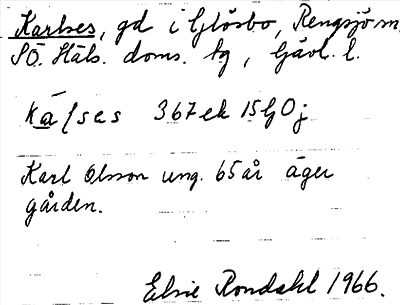 Karlses, gd i Glösbo, Rengsjö sn,
SÖ. Häls. doms. tg, Gävl. l.
ka/ses 367 ek 15 G0j
Karl Olsson ung. 65 år äger
gården.
Elsie Rondahl 1966.